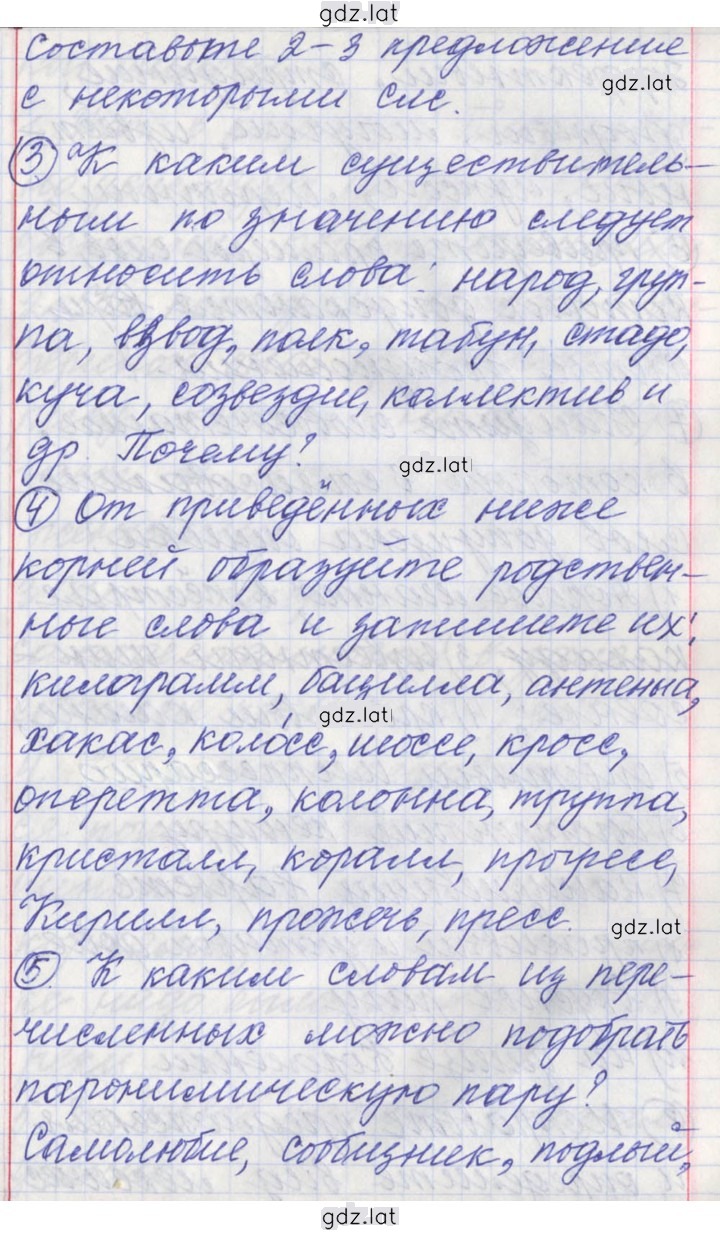 gdz.lat
Составьте 2-3 предложение
gdz.lat
с некоторыми слс.
3 К каким существитель-
ным по значению следует
относить слова: народ, груп-
па, взвод, полк, табун, стадо,
куча, созвездие, коллектив и
др. Почему?
gdz.lat
4 От приведённых ниже
корней образуйте родствен-
ные слова и запишите их:
килограмм, бацилла, антенна,
gdz.lat
хакас, колосс, шоссе, кросс,
оперетта, колонна, труппа,
кристалл, коралл, прогресс,
Кирилл, прожечь, пресс.
gdz.lat
5. К каким словам из пере-
численных можно подобрать
паронимическую пару?
Самолюбие, сообщник, подлый,
gdz.lat